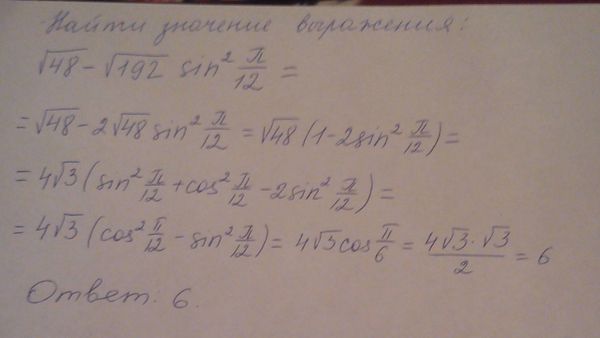 Найти значение выражения:
√48 - √192 sin² π/12 =
= √48 - 2√48 sin² π/12 = √48 (1 - 2sin² π/12) =
= 4√3 (sin² π/12 + cos² π/12 - 2sin² π/12) =
= 4√3 (cos² π/12 - sin² π/12) = 4√3 cos π/6 = 4√3·√3/2 = 6
Ответ: 6.